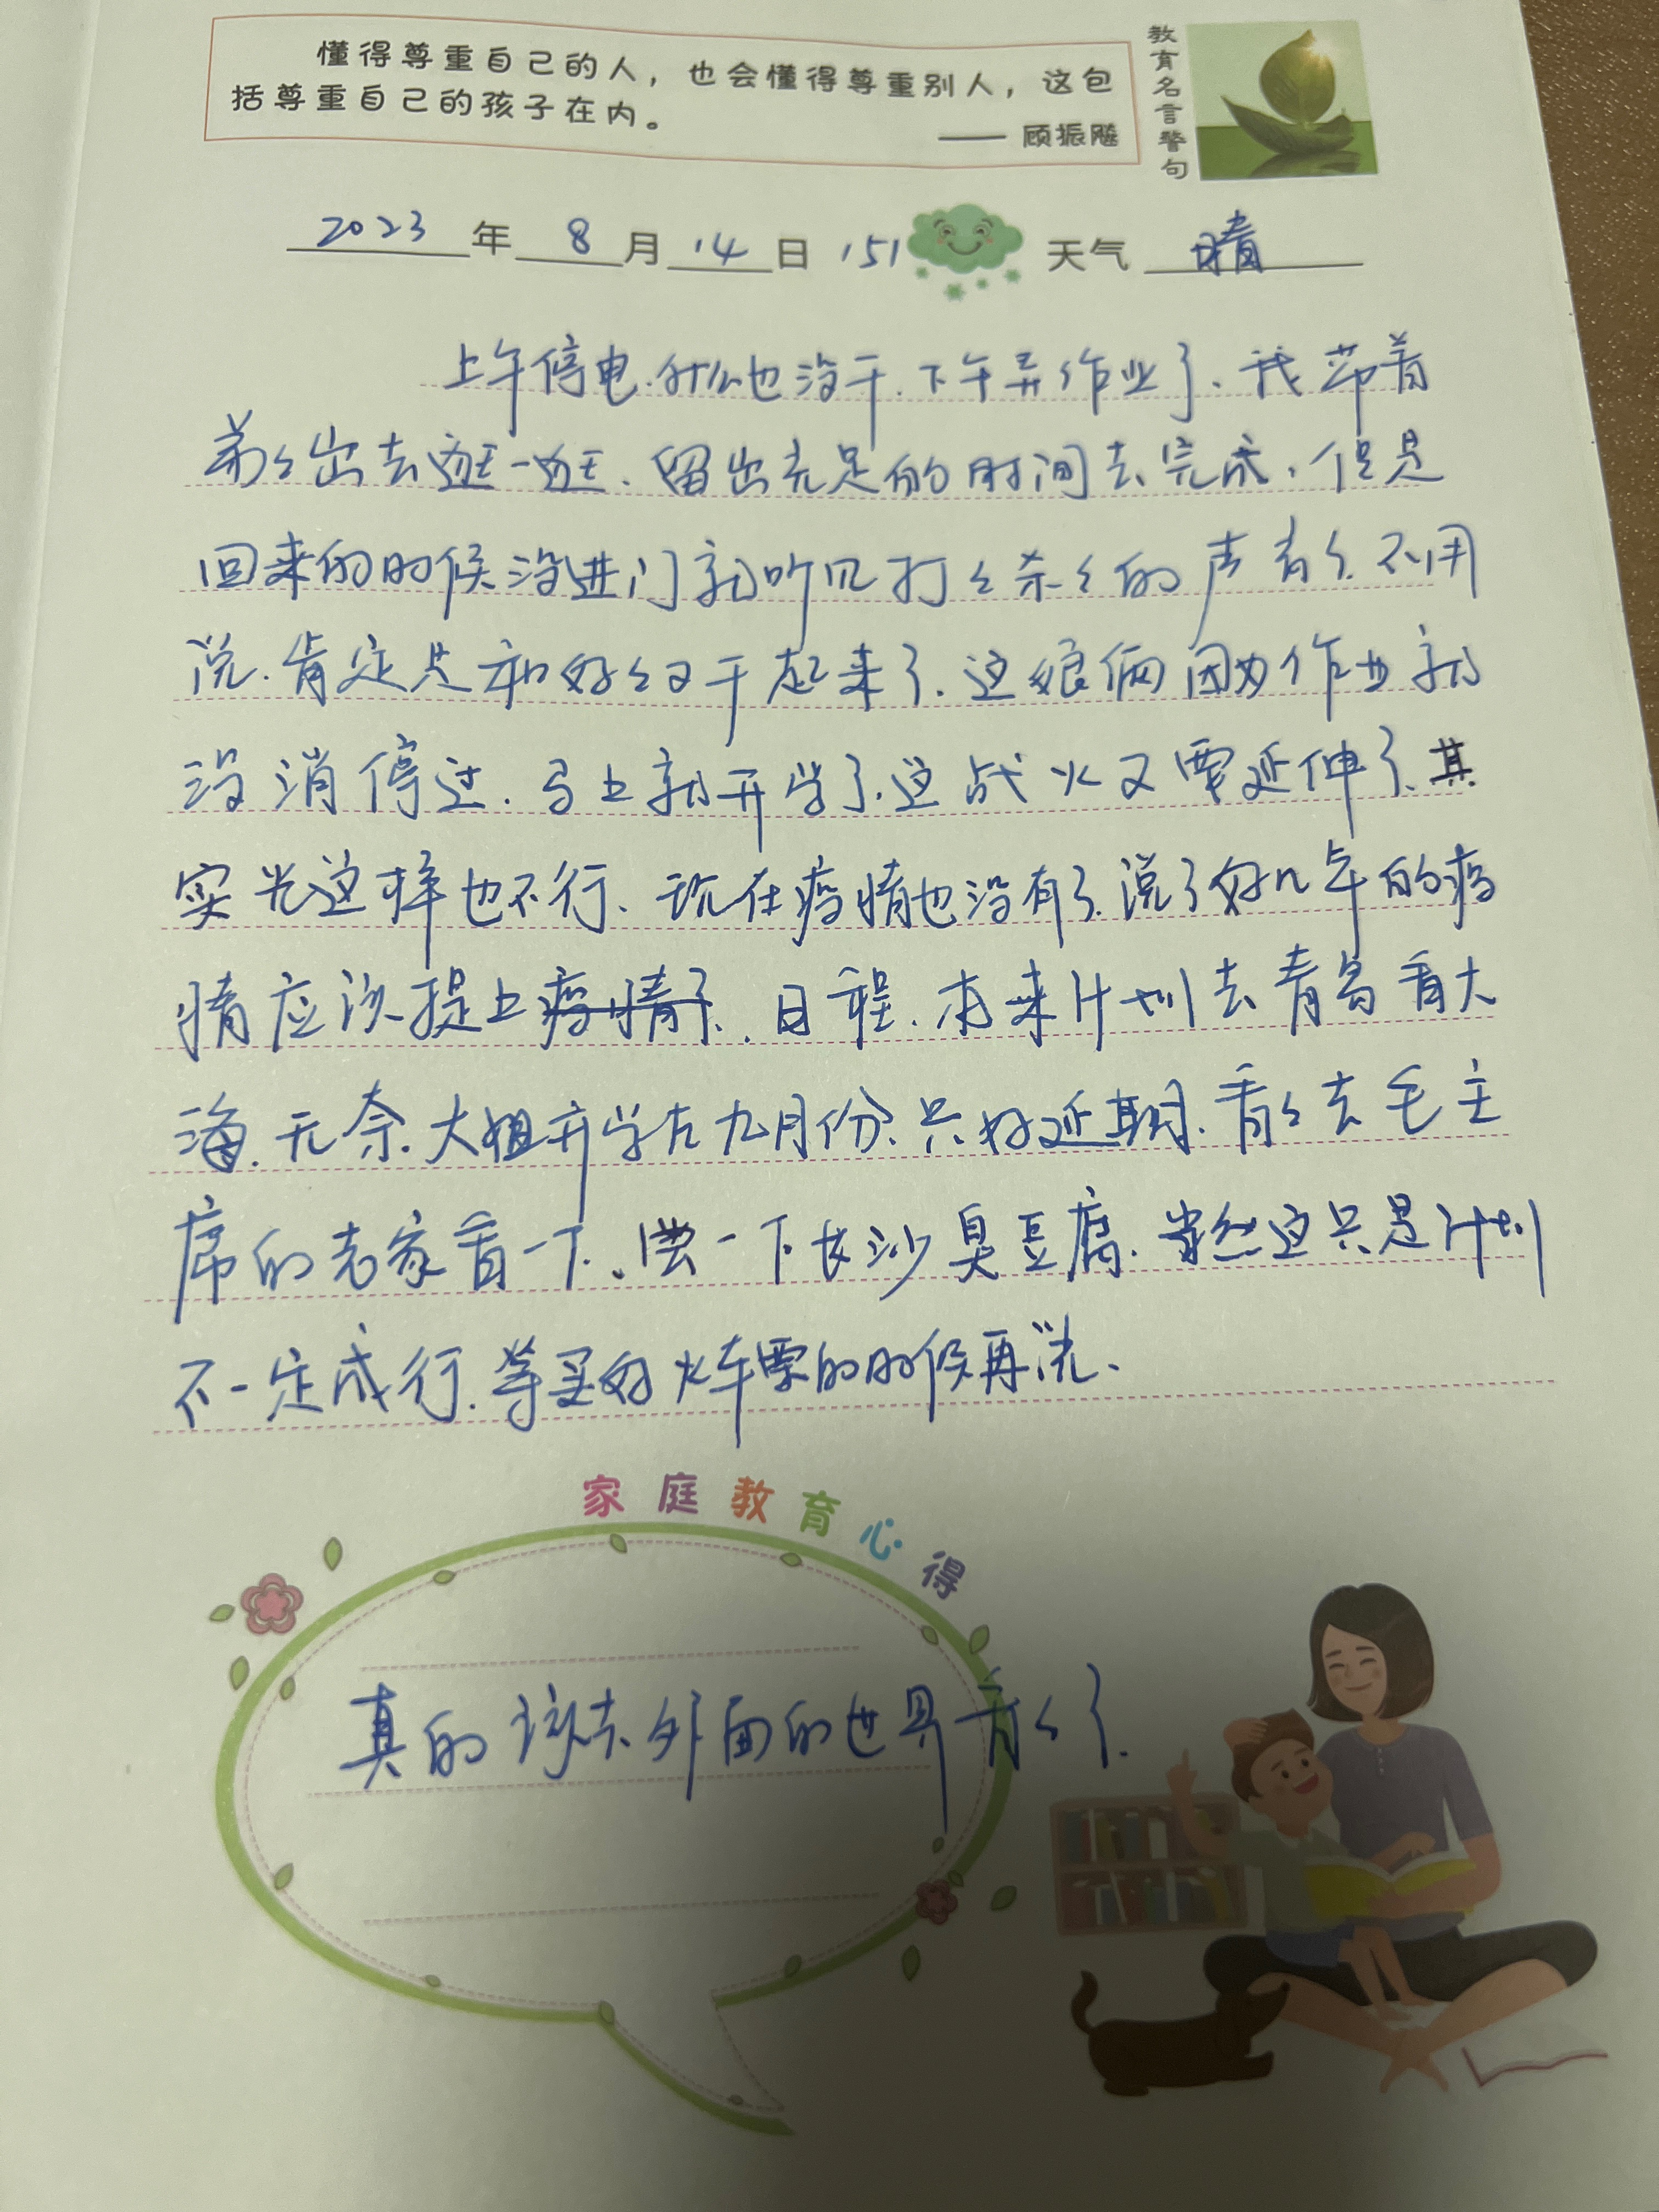 懂得尊重自己的人，也会懂得尊重别人，这包
括尊重自己的孩子在内。
—— 顾振飚
教育名言警句
2023年8月14日 151 天气 晴
上午停电.什么也没干.下午弄作业了、我带着
弟々出去逛一逛、留出充足的时间去完成、但是
回来的时候没进门就听见打々杀々的声音々.不用
说.肯定是和好々又干起来了.这娘俩因为作业就
没消停过.马上就开学了.这战火又要延伸了.其
实光这样也不行、现在疫情也没有了.说了好几年的疫
情应该提上疫情了.日程.本来计划去青岛看大
海.无奈.大姐开学在九月份、只好延期.看々去毛主
席的老家看一下.、尝一下长沙臭豆腐.当然这只是计划
不一定成行.等买好火车票的时候再说、
家庭教育心得
真的该去外面的世界看々了.